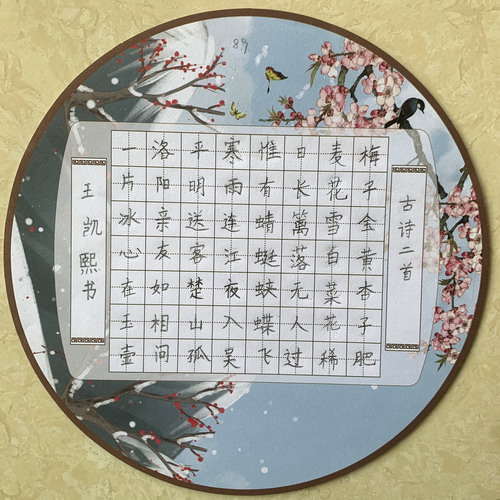 89
古诗二首
梅子金黄杏子肥
麦花雪白菜花稀
日长篱落无人过
惟有蜻蜓蛱蝶飞
寒雨连江夜入吴
平明送客楚山孤
洛阳亲友如相问
一片冰心在玉壶
王凯熙书